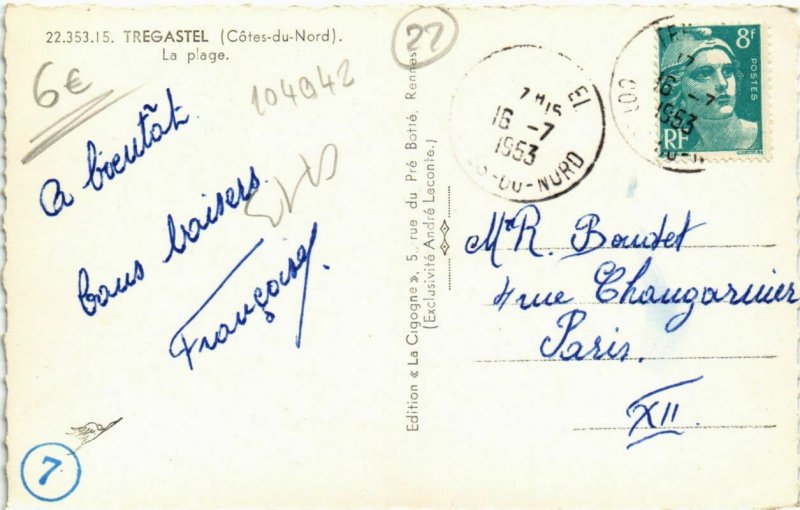 22.353.15. TREGASTEL (Côtes-du-Nord).
La plage.
6€
104942
27
A bientôt
bons baisers
Françoise.
7
Edition « La Cigogne », 5, rue du Pré Botté, Rennes
(Exclusivité André Leconte.)
7H15
16-7
1953
-DU-NORD
16-7
1953
8F
POSTES
RF
Mr R. Boudet
4 rue Changarnier
Paris.
XII.